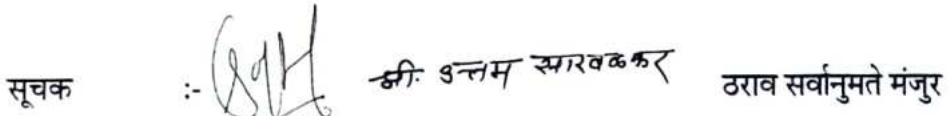 सूचक :- श्री. उत्तम खारवळकर ठराव सर्वानुमते मंजुर